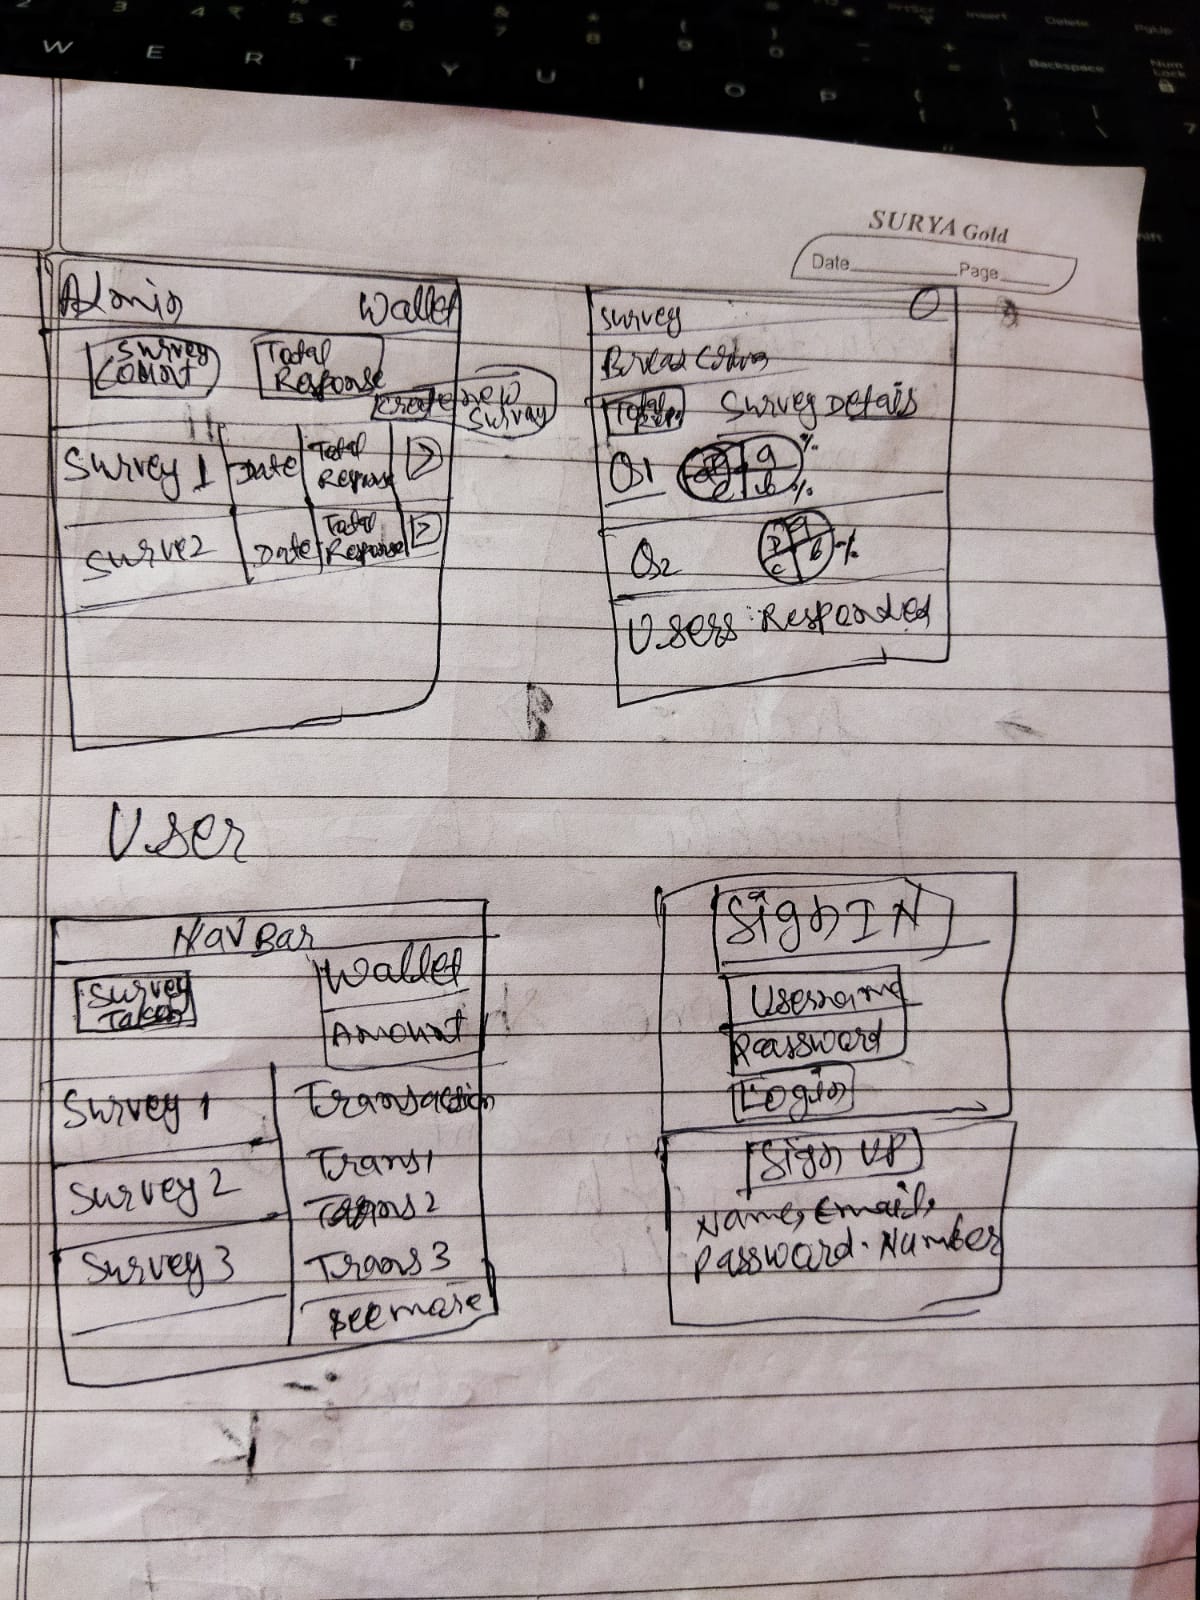 W E R T Y U I O P
Backspace
SURYA Gold
Date Page
Admin Wallet
Survey
Count
Total
Response
Create new
Survey
Survey 1 Date Total
Response >
Surve2 Date Total
Response >
Survey
Bread Crum
Total
Resp. Survey Details
Q1 a %
b %
c
Q2 D a
c b %
Users Responded
User
NavBar
Survey
Taken
Wallet
Amount
Survey 1
Survey 2
Survey 3
Transaction
Trans1
Trans 2
Trans 3
see more
Sign IN
Username
Password
Login
Sign UP
Name, Email,
Password. Number